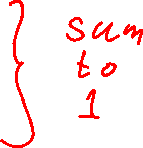 sum
to
1